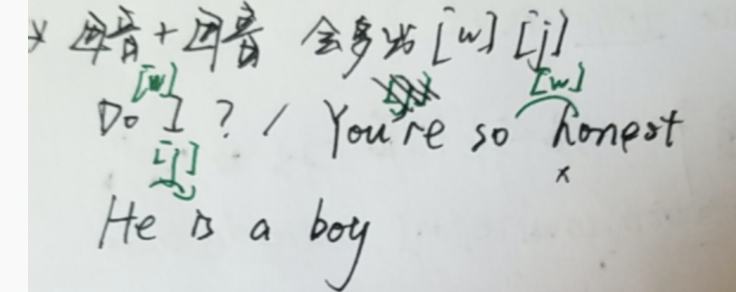 元音+元音 会多出 [w] [j]
[w] [w]
Do I ? / You're so honest
[j] x
He is a boy